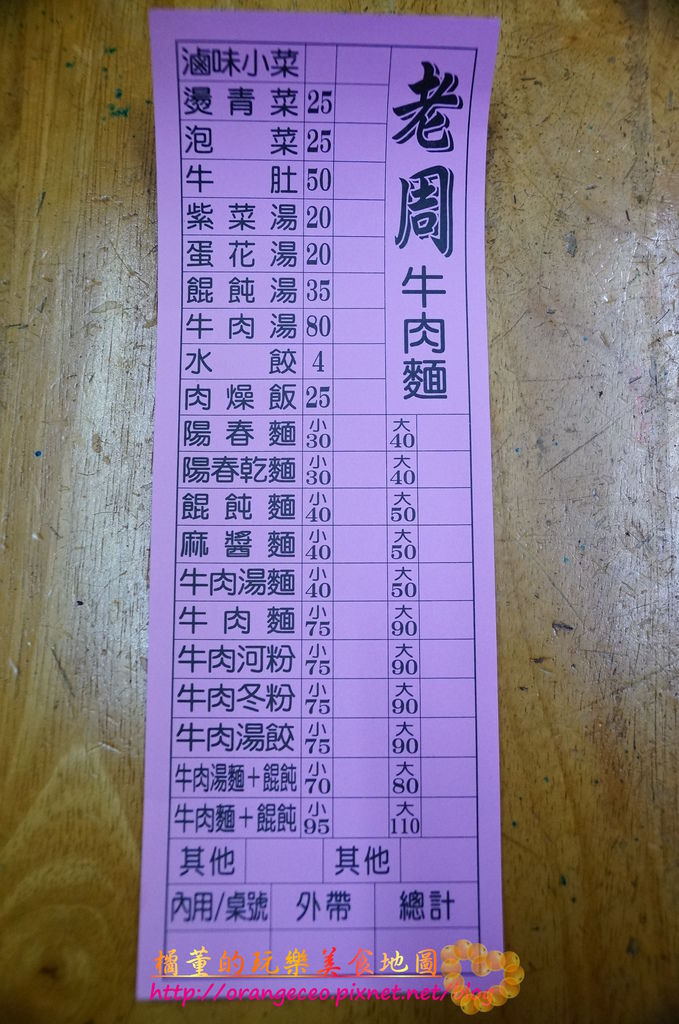 老周
牛肉麵
滷味小菜
燙青菜 25
泡菜 25
牛肚 50
紫菜湯 20
蛋花湯 20
餛飩湯 35
牛肉湯 80
水餃 4
肉燥飯 25
陽春麵 小30 大40
陽春乾麵 小30 大40
餛飩麵 小40 大50
麻醬麵 小40 大50
牛肉湯麵 小40 大50
牛肉麵 小75 大90
牛肉河粉 小75 大90
牛肉冬粉 小75 大90
牛肉湯餃 小75 大90
牛肉湯麵+餛飩 小70 大80
牛肉麵+餛飩 小95 大110
其他 其他
內用/桌號 外帶 總計
橘董的玩樂美食地圖
http://orangeceo.pixnet.net/blog